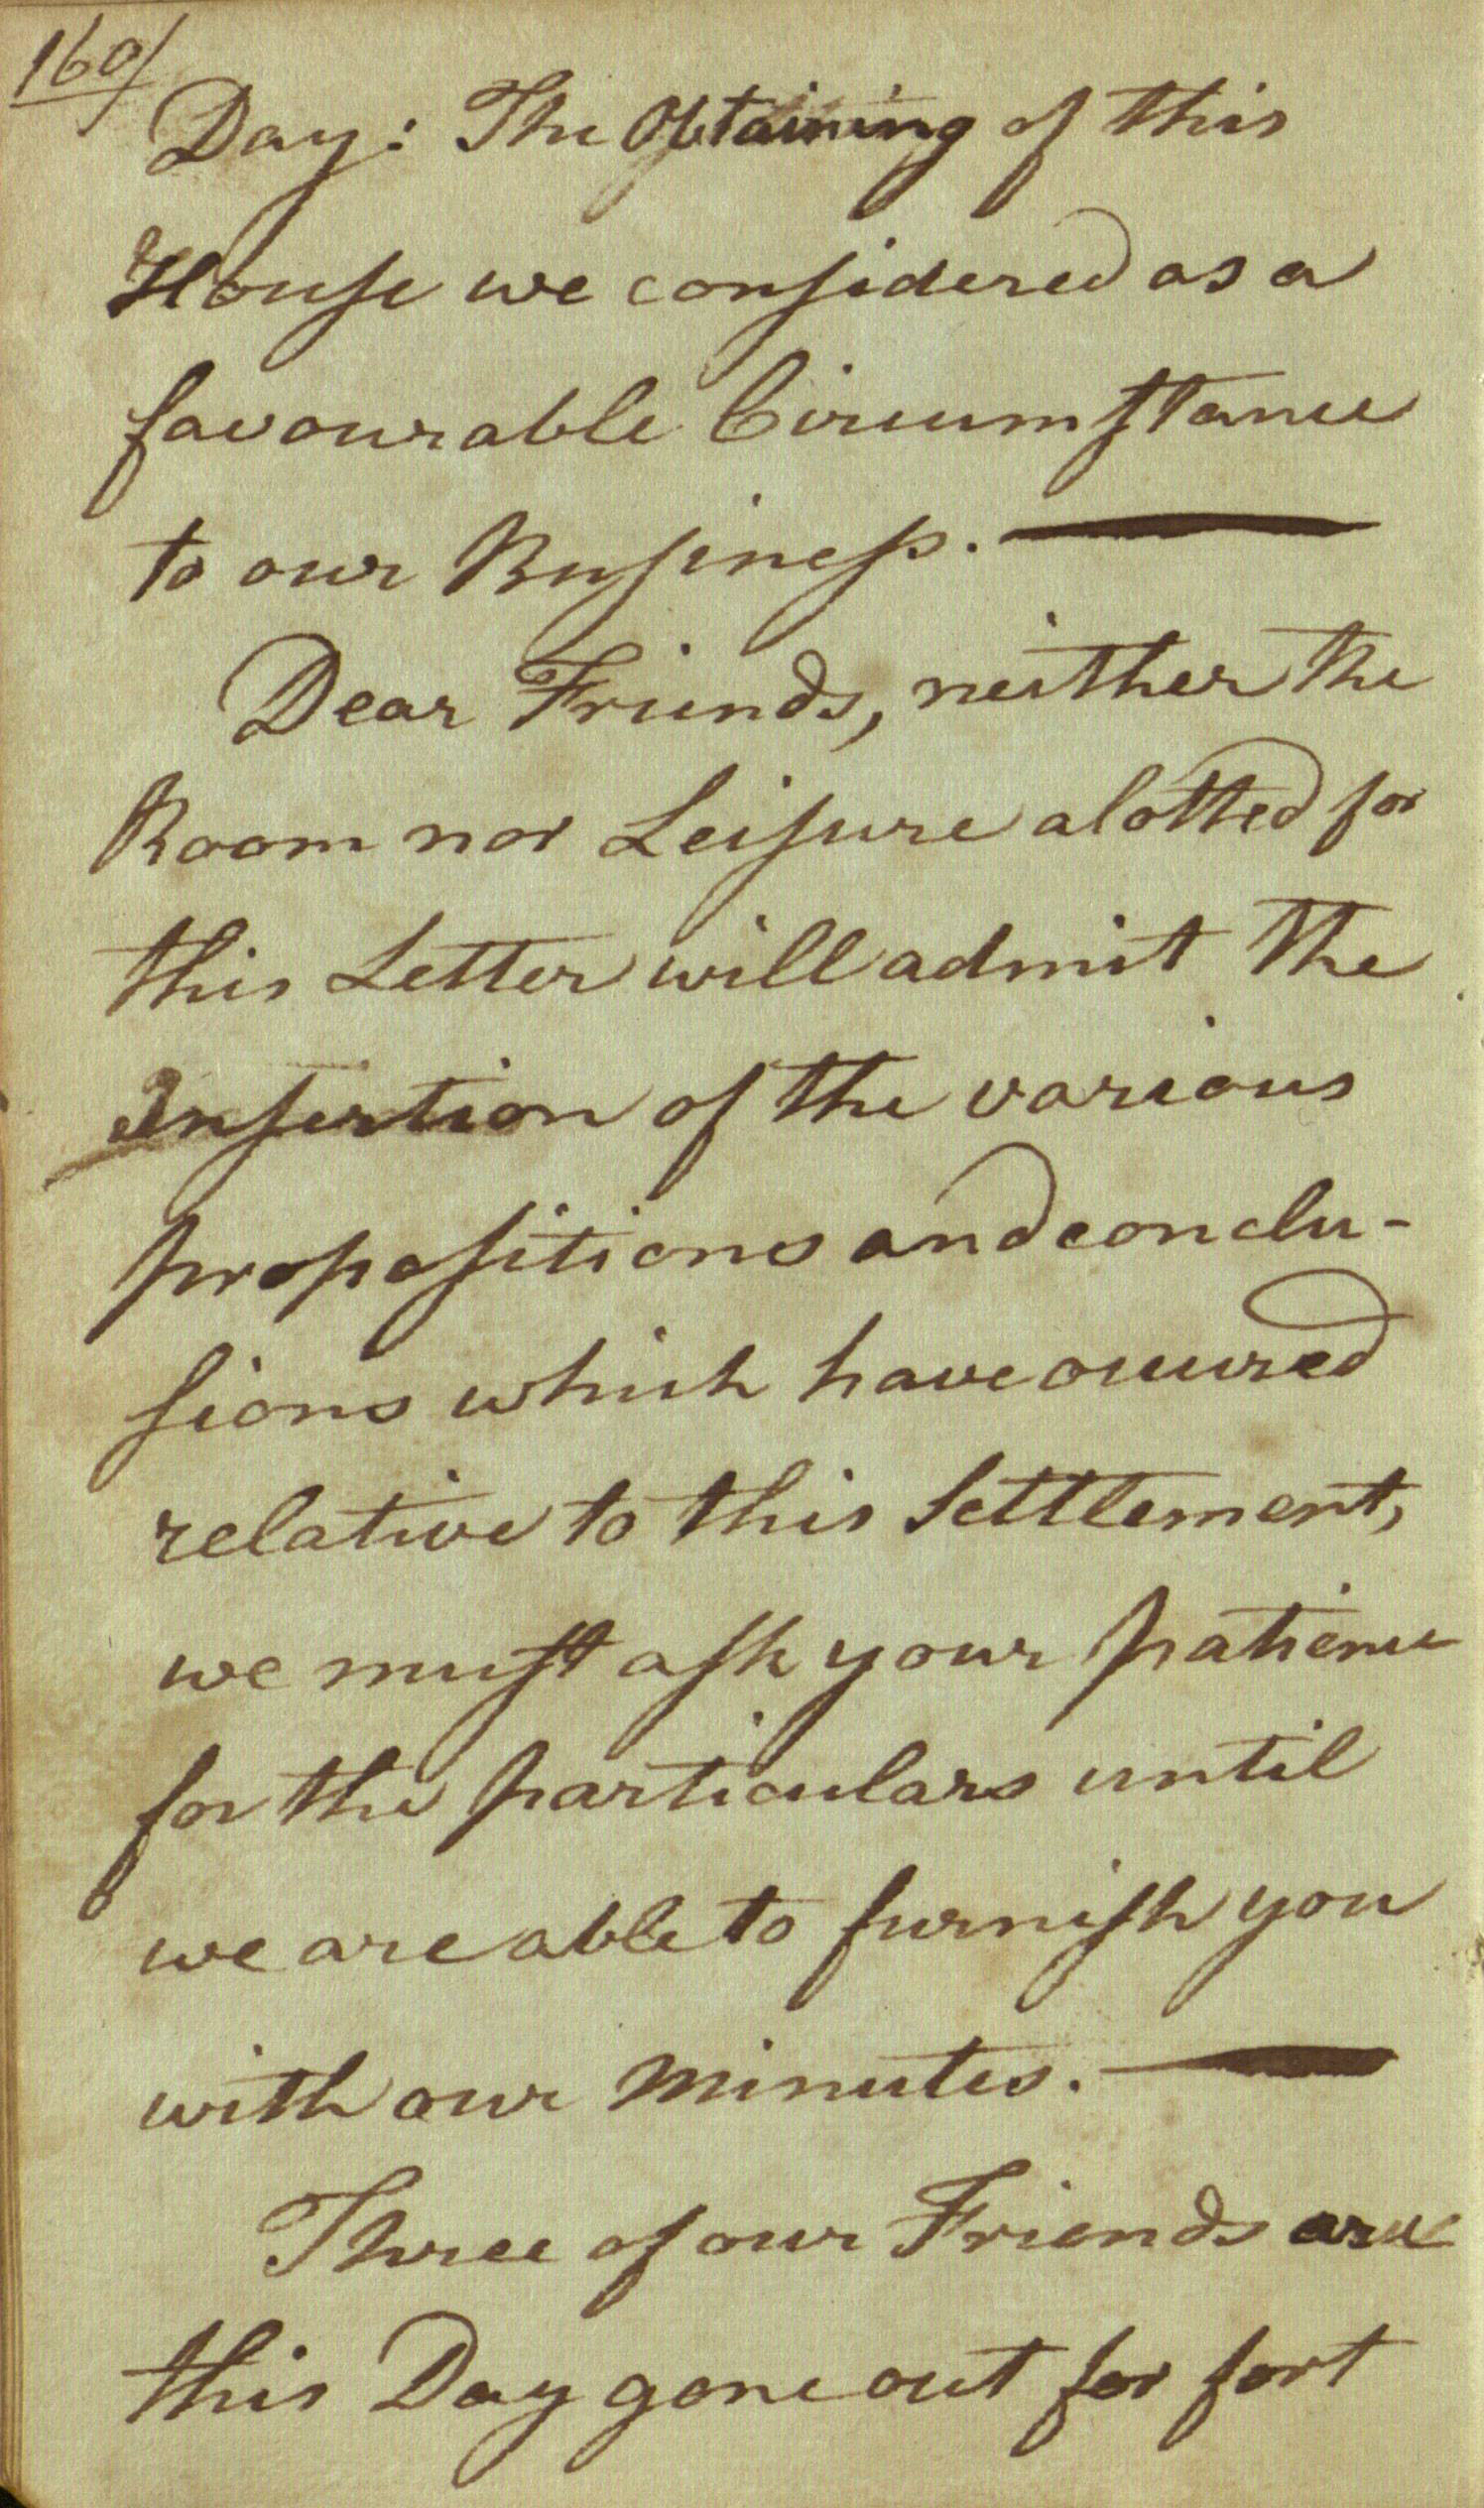 160/
Day: The Obtaining of this
House we considered as a
favourable Circumstance
to our Business. —
Dear Friends, neither the
Room nor Leisure alotted for
this Letter will admit the
Insertion of the various
propositions and conclu-
sions which have occured
relative to this Settlement,
we must ask your patience
for the particulars until
we are able to furnish you
with our minutes. —
Three of our Friends are
this Day gone out for fort